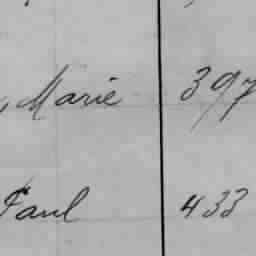 , Marie 397
Paul 433